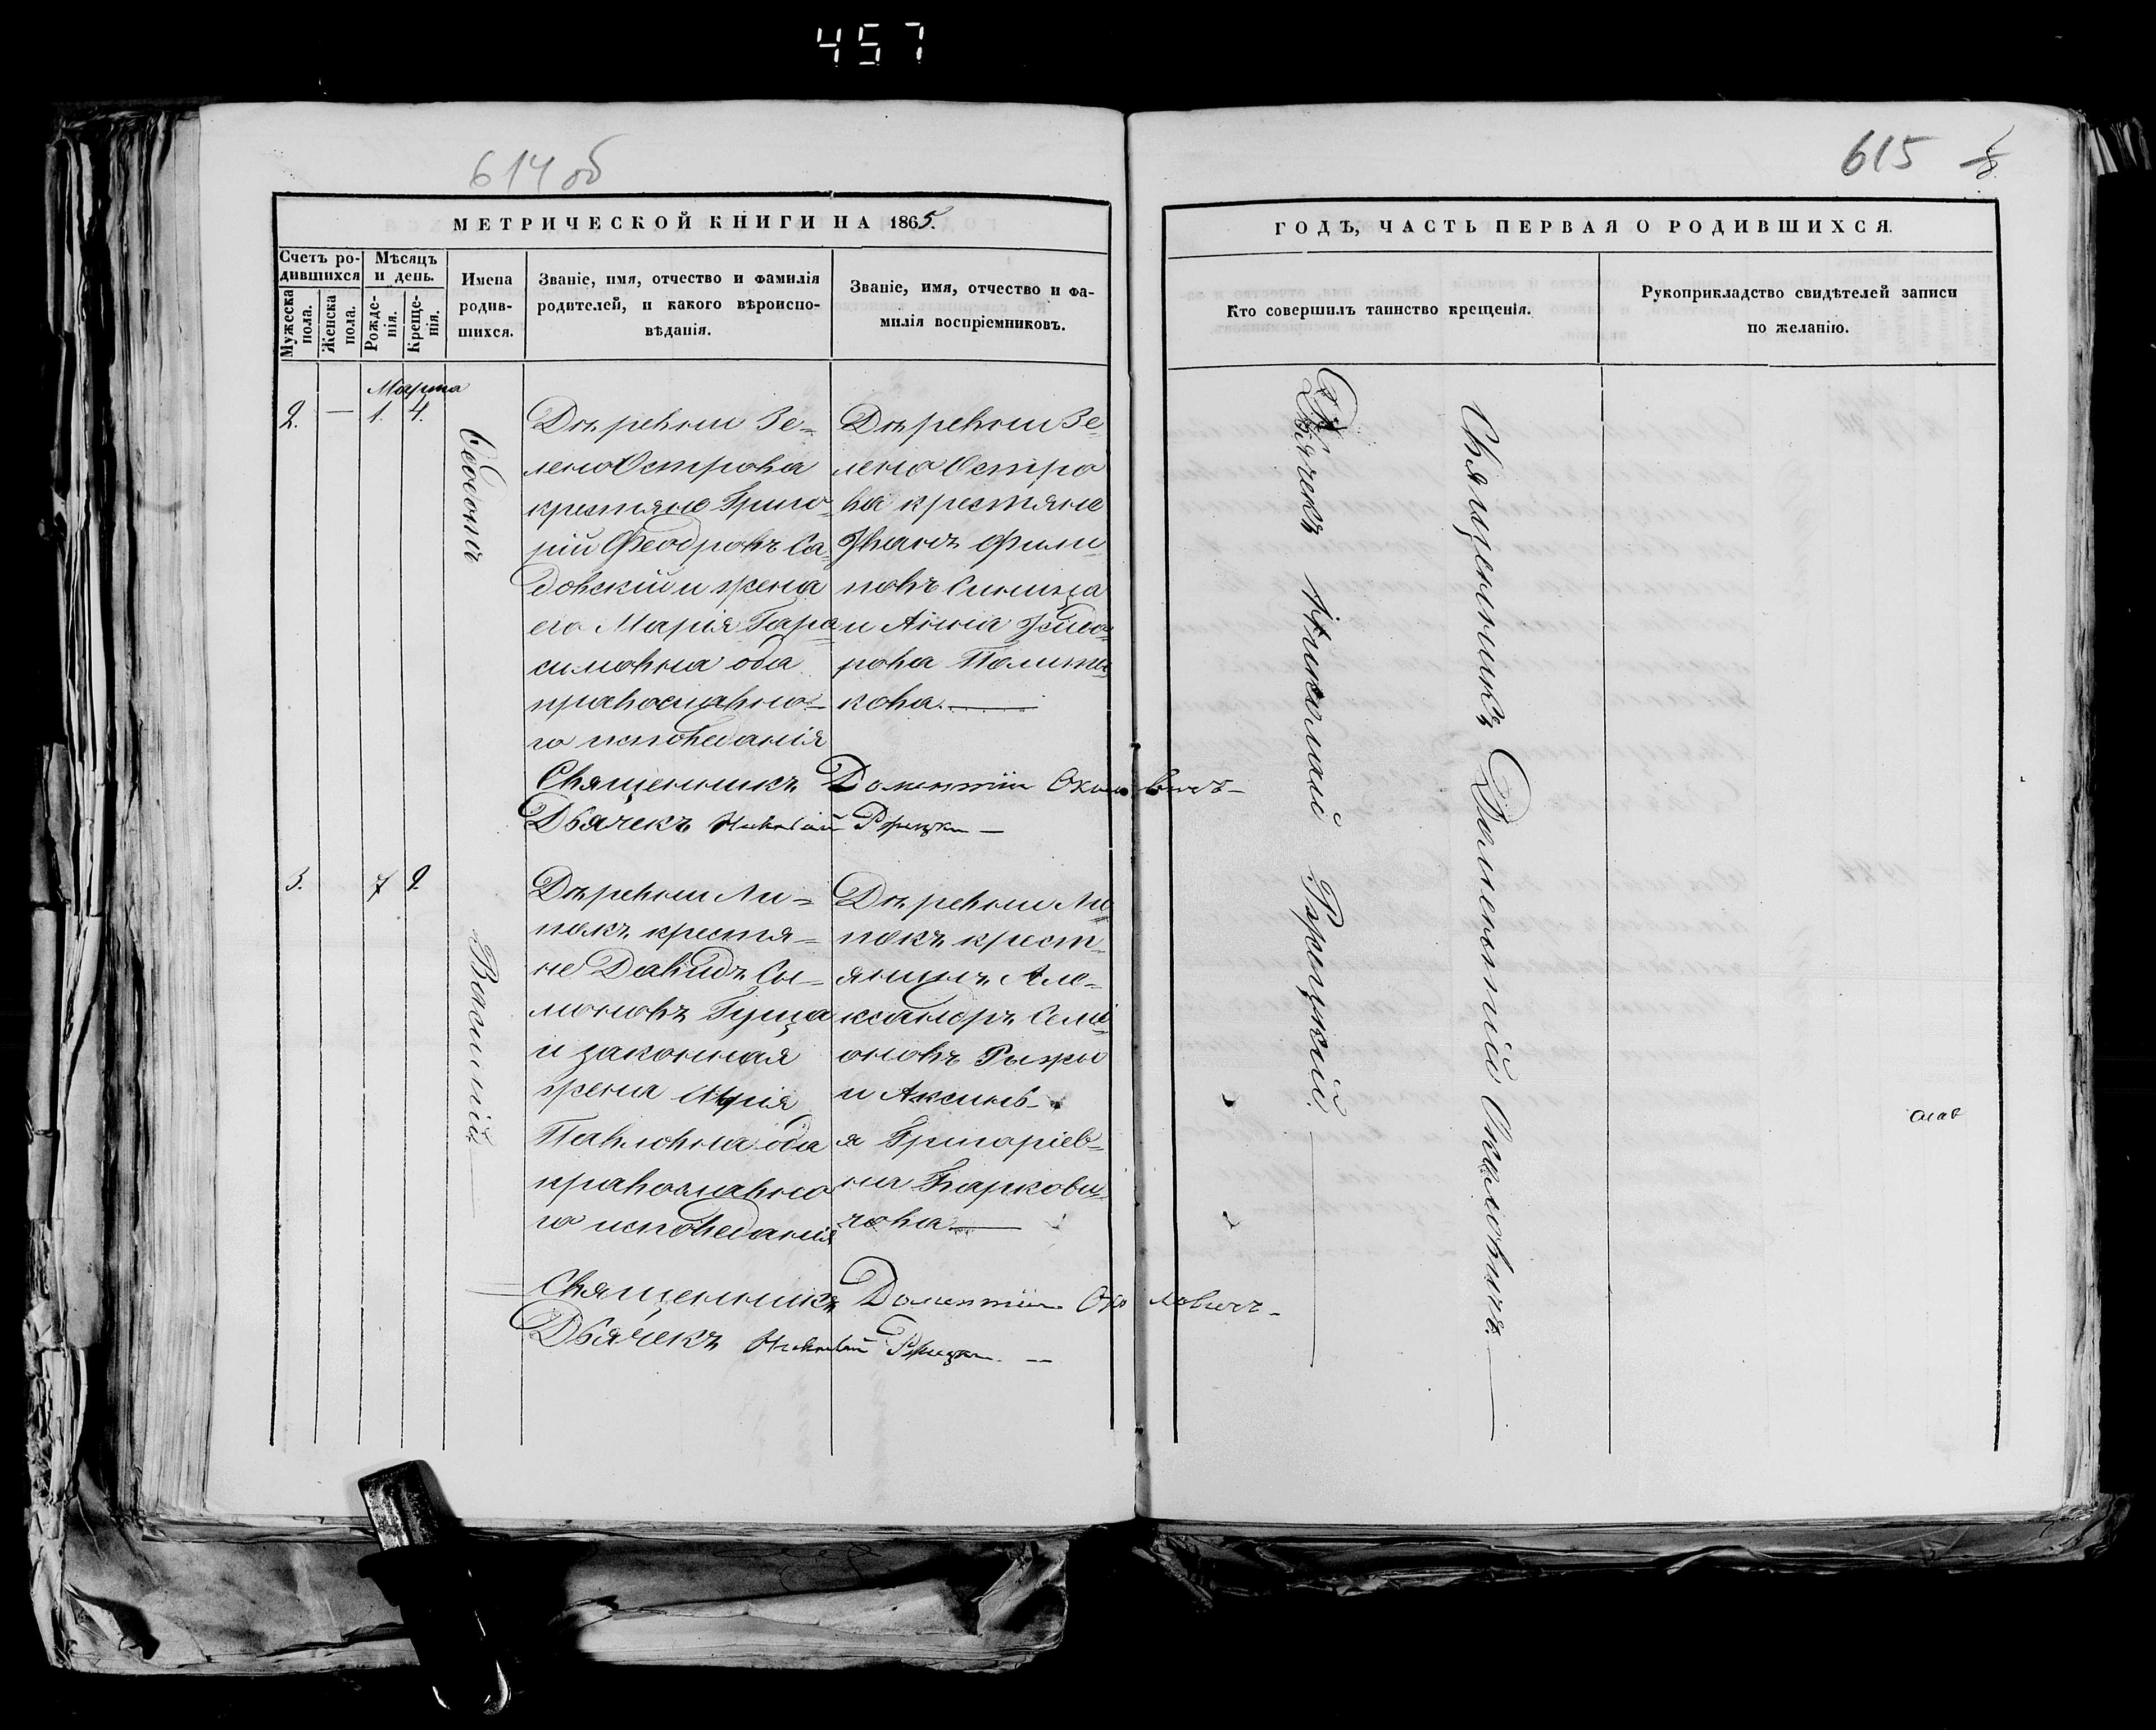 457
614 об
МЕТРИЧЕСКОЙ КНИГИ НА 1865.
Счетъ ро-
дившихся
Мужеска
пола.
Женска
пола.
Мѣсяцъ
и день.
Рожде-
нія.
Креще-
нія.
Имена
родив-
шихся.
Званіе, имя, отчество и фамилія
родителей, и какого вѣроиспо-
вѣданія.
Званіе, имя, отчество и фа-
милія воспріемниковъ.
Марта
2. — 1. 4.
Деревни Зе-
лено Острова
крестяне Григо-
рій Феодоровъ Са-
довскій и жена
его Марія Гара-
симовна оба
православно-
го исповеданія
Деревни Зе-
лено Остро
ва крестяне
Иванъ Фили-
повъ Синица
и Анна
кова.
Священникъ Доментій
Дьячекъ Николай
3. 7 9.
Василій
Деревни Ли-
покъ крестя-
не Давидъ Си-
моновъ Гуща
и законная
жена Марія
Павловна оба
православно
го исповеданія
Деревни Ли
покъ крест-
янинъ Але-
ксандръ Семі-
оновъ Рыжы
и Аксинь-
я Григоріев-
на Баркови-
чова
Священникъ Доментій Околовичъ
Дьячекъ Николай
615
ГОДЪ, ЧАСТЬ ПЕРВАЯ О РОДИВШИХСЯ.
Кто совершилъ таинство крещенія.
Рукоприкладство свидѣтелей записи
по желанію.
Священникъ Доментій Околовичъ.
Дьячекъ Николай